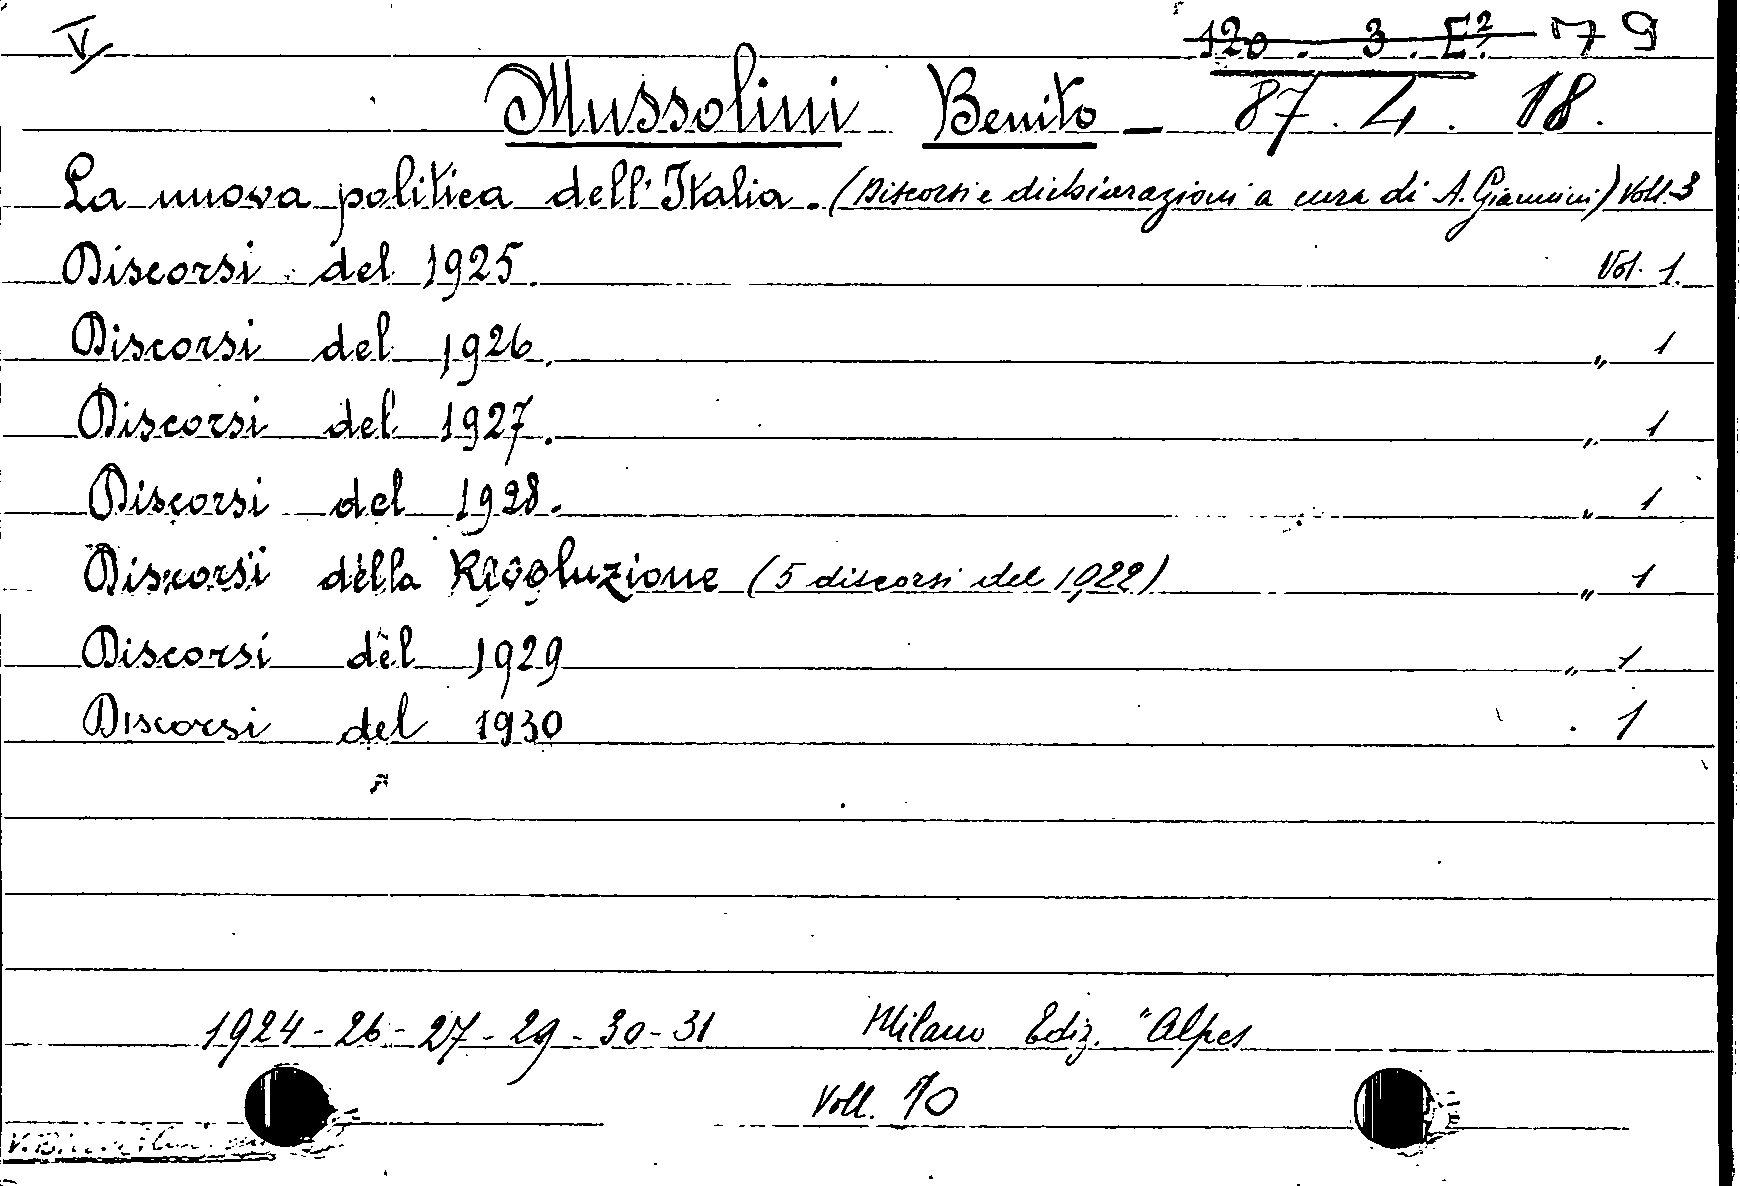 V
120 . 3 . E². 79
Mussolini Benito - 87. 4. 18.
La nuova politica dell'Italia. (Discorsi e dichiarazioni a cura di A. Giannini) Voll. 3
Discorsi del 1925. Vol. 1.
Discorsi del 1926. „ 1
Discorsi del 1927. „ 1
Discorsi del 1928. „ 1
Discorsi della Rivoluzione (5 discorsi del 1922) „ 1
Discorsi del 1929 „ 1
Discorsi del 1930 . 1
1924-26-27-29-30-31 Milano Ediz. "Alpes
Voll. 10